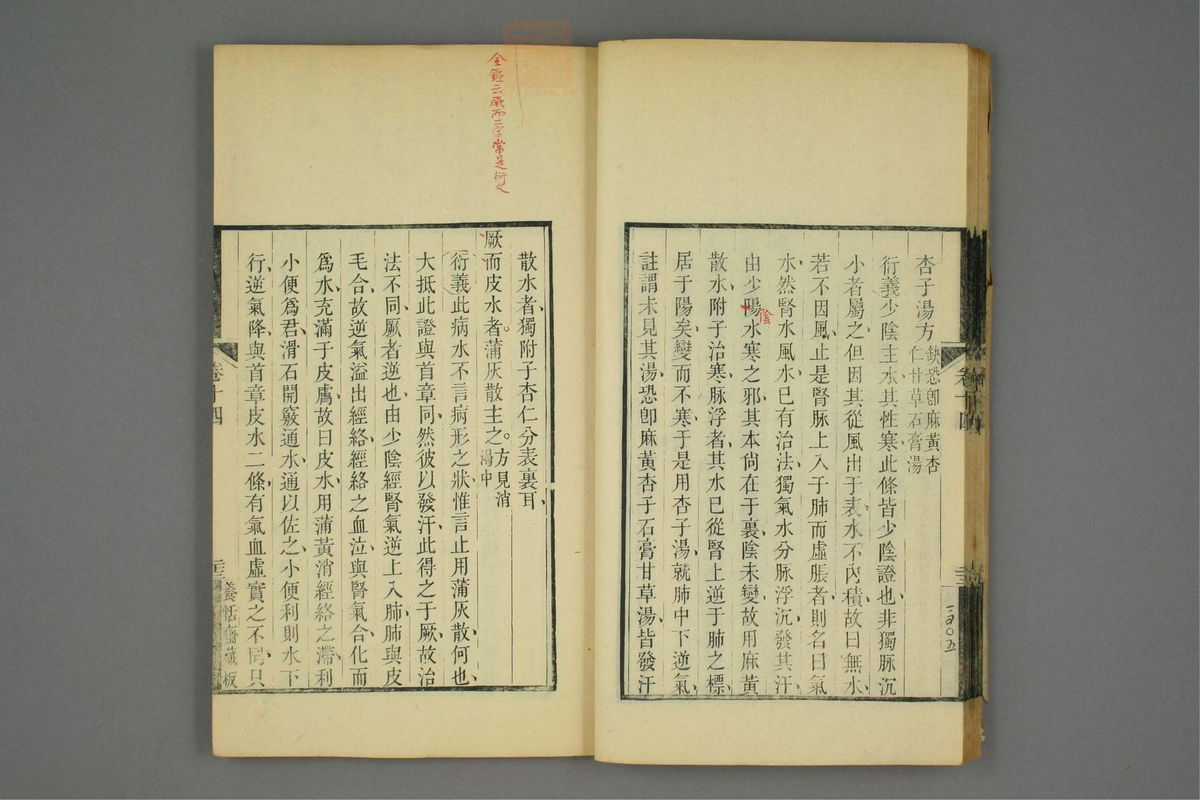 杏子湯方 缺恐卽麻黃杏
仁甘草石膏湯
衍義少陰主水其性寒此條皆少陰證也非獨脉沉
小者屬之但因其從風出于表水不內積故曰無水
若不因風止是腎脉上入于肺而虛脹者則名曰氣
水然腎水風水已有治法獨氣水分脉浮沉發其汗
由少陽水寒之邪其本尙在于裏陰未變故用麻黃
陰
散水附子治寒脉浮者其水已從腎上逆于肺之標
居于陽矣變而不寒于是用杏子湯就肺中下逆氣
註謂未見其湯恐卽麻黃杏子石膏甘草湯皆發汗
卷十四
二百〇五
金鑑云厥而二字當是衍文
散水者獨附子杏仁分表裏耳
厥而皮水者。蒲灰散主之。方見消
渴中
衍義此病水不言病形之狀惟言止用蒲灰散何也
大抵此證與首章同然彼以發汗此得之于厥故治
法不同厥者逆也由少陰經腎氣逆上入肺肺與皮
毛合故逆氣溢出經絡經絡之血泣與腎氣合化而
爲水充滿于皮膚故曰皮水用蒲黃消經絡之滯利
小便爲君滑石開竅通水通以佐之小便利則水下
行逆氣降與首章皮水二條有氣血虛實之不同只
卷十四
養恬齋藏板